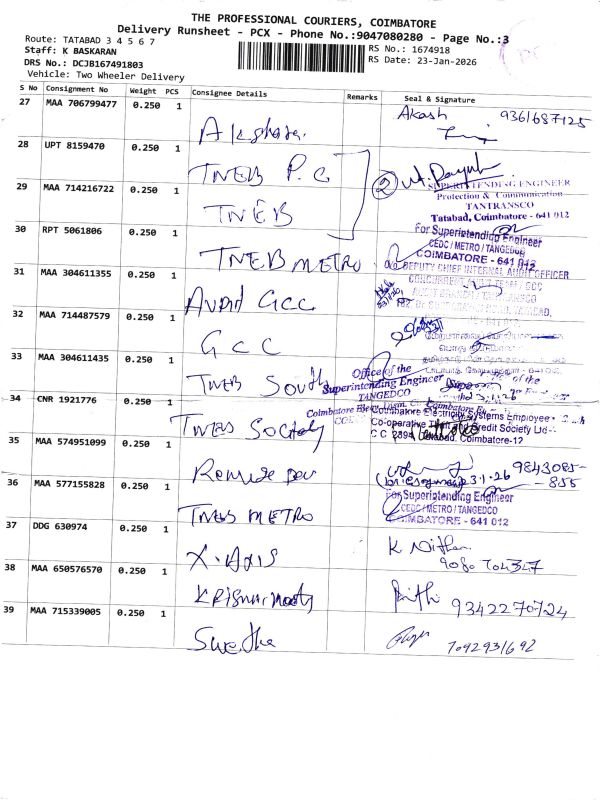 THE PROFESSIONAL COURIERS, COIMBATORE
Delivery Runsheet - PCX - Phone No.:9047080280 - Page No.:3
Route: TATABAD 3 4 5 6 7
RS No.: 1674918
Staff: K BASKARAN
RS Date: 23-Jan-2026
DRS No.: DCJB167491803
Vehicle: Two Wheeler Delivery
S No Consignment No Weight PCS Consignee Details Remarks Seal & Signature
27 MAA 706799477 0.250 1 Akshara Akash 9361687125
28 UPT 8159470 0.250 1 TNEB P.C
29 MAA 714216722 0.250 1 TNEB
SUPERINTENDING ENGINEER
Protection & Communication
TANTRANSCO
Tatabad, Coimbatore - 641 012
30 RPT 5061806 0.250 1 TNEB METRO
For Superintending Engineer
CEDC / METRO / TANGEDCO
COIMBATORE - 641 012
31 MAA 304611355 0.250 1 Audit GCC
O/o DEPUTY CHIEF INTERNAL AUDIT OFFICER
32 MAA 714487579 0.250 1 GCC
33 MAA 304611435 0.250 1 TNEB South
Office of the
Superintending Engineer
TANGEDCO
34 CNR 1921776 0.250 1 TNEB Society
Coimbatore Electricity Systems Employee
Co-operative Thrift and Credit Society Ltd
C C 2894, Tatabad, Coimbatore-12
35 MAA 574951099 0.250 1 9843085-
-855
23.1.26
36 MAA 577155828 0.250 1 TNEB METRO
For Superintending Engineer
CEDC / METRO / TANGEDCO
COIMBATORE - 641 012
37 DDG 630974 0.250 1 X-Axis K Nithan
9080704347
38 MAA 650576570 0.250 1 Krishnamoorthy 9342270724
39 MAA 715339005 0.250 1 Swetha 7092931692